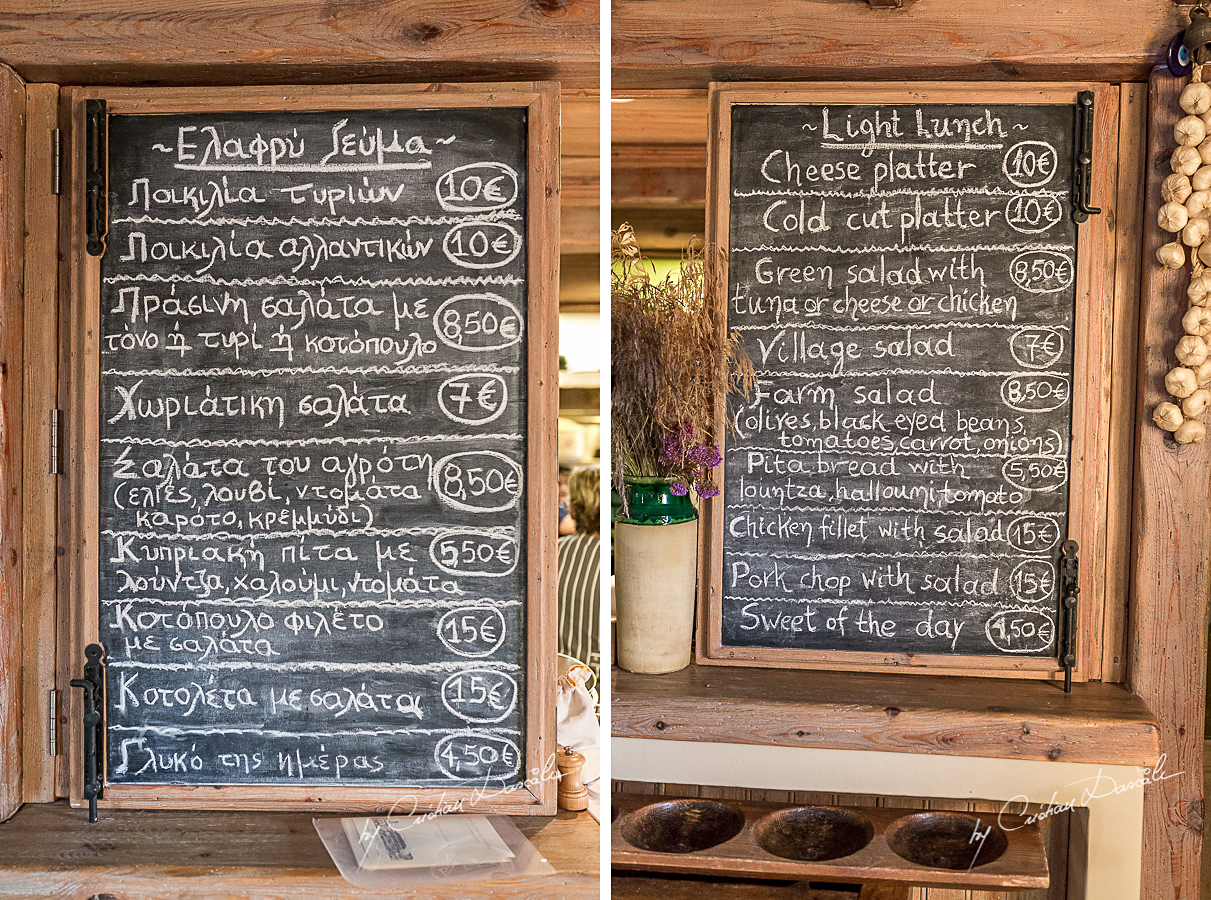 ~Ελαφρύ Γεύμα~
Ποικιλία τυριών 10€
Ποικιλία αλλαντικών 10€
Πράσινη σαλάτα με 8,50€
τόνο ή τυρί ή κοτόπουλο
Χωριάτικη σαλάτα 7€
Σαλάτα του αγρότη 8,50€
(ελιές, λουβί, ντομάτα
καρότο, κρεμμύδι)
Κυπριακή πίτα με 5,50€
λούντζα, χαλούμι, ντομάτα
Κοτόπουλο φιλέτο 15€
με σαλάτα
Κοτολέτα με σαλάτα 15€
Γλυκό της ημέρας 4,50€
by Cristian Dascălu
~Light Lunch~
Cheese platter 10€
Cold cut platter 10€
Green salad with 8,50€
tuna or cheese or chicken
Village salad 7€
Farm salad 8,50€
(olives, black eyed beans,
tomatoes, carrot, onions)
Pita bread with 5,50€
lountza, halloumi, tomato
Chicken fillet with salad 15€
Pork chop with salad 15€
Sweet of the day 4,50€
by Cristian Dascălu